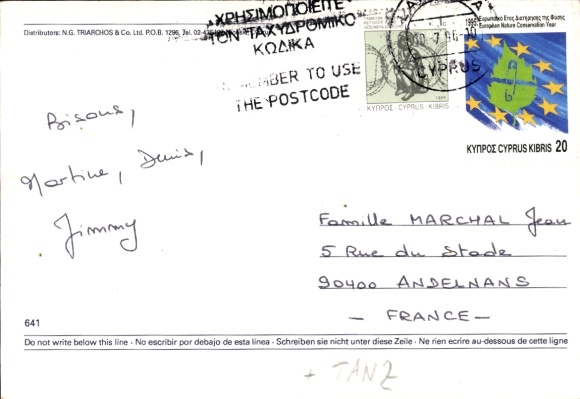 Distributors: N.G. TRIARCHOS & Co. Ltd. P.O.B. 1296, Tel. 02-
ΧΡΗΣΙΜΟΠΟΙΕΙΤΕ
ΤΟΝ ΤΑΧΥΔΡΟΜΙΚΟ
ΚΩΔΙΚΑ
MEMBER TO USE
THE POSTCODE
ΚΥΠΡΟΣ-CYPRUS-KIBRIS
CYPRUS
1995 Ευρωπαϊκό Έτος Διατήρησης της Φύσης
European Nature Conservation Year
ΚΥΠΡΟΣ CYPRUS KIBRIS 20
Bisous,
Martine, Denis,
Jimmy
Famille MARCHAL Jean
5 Rue du Stade
90400 ANDELNANS
- FRANCE -
641
Do not write below this line · No escribir por debajo de esta línea · Schreiben sie nicht unter diese Zeile · Ne rien ecrire au-dessous de cette ligne
+ TANZ